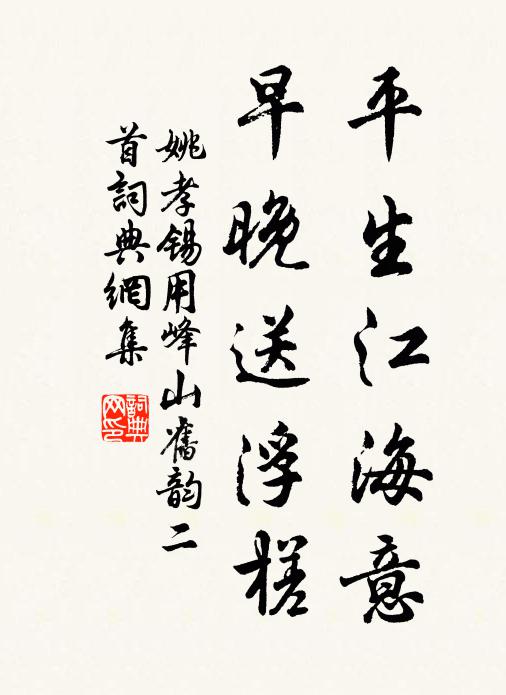 平生江海意
早晚送浮槎
姚孝锡用峰山舊韵二
首詞典網集
詞典
网印